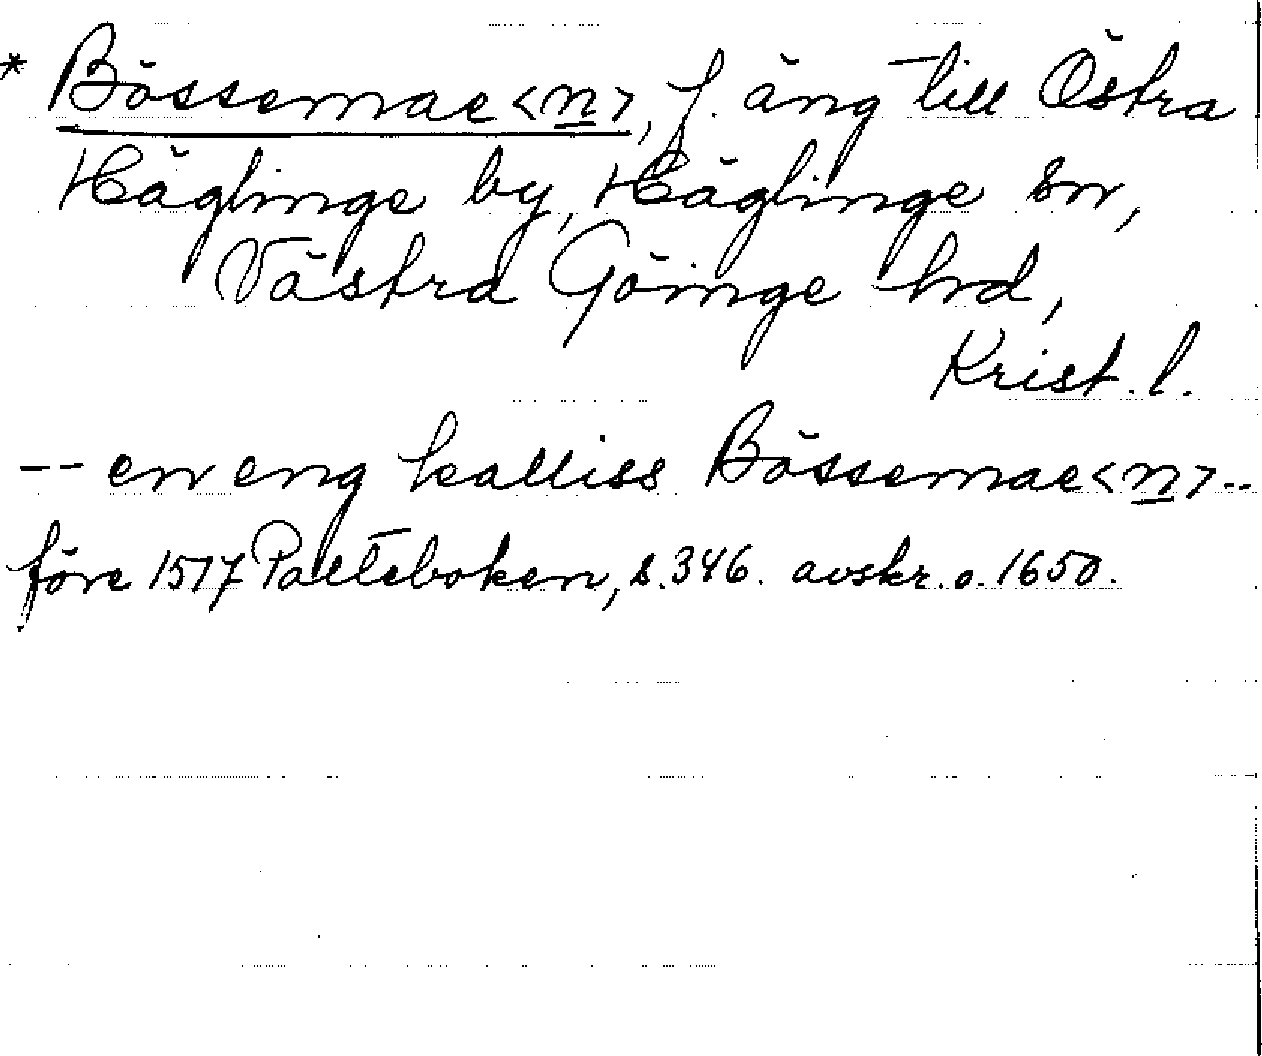 * Bössemae<n>, f. äng till Östra
Häglinge by, Häglinge sn,
Västra Göinge hd,
Krist. l.
-- en eng kalliss Bössemae<n>--
före 1517 Palteboken, s. 346. avskr. o. 1650.